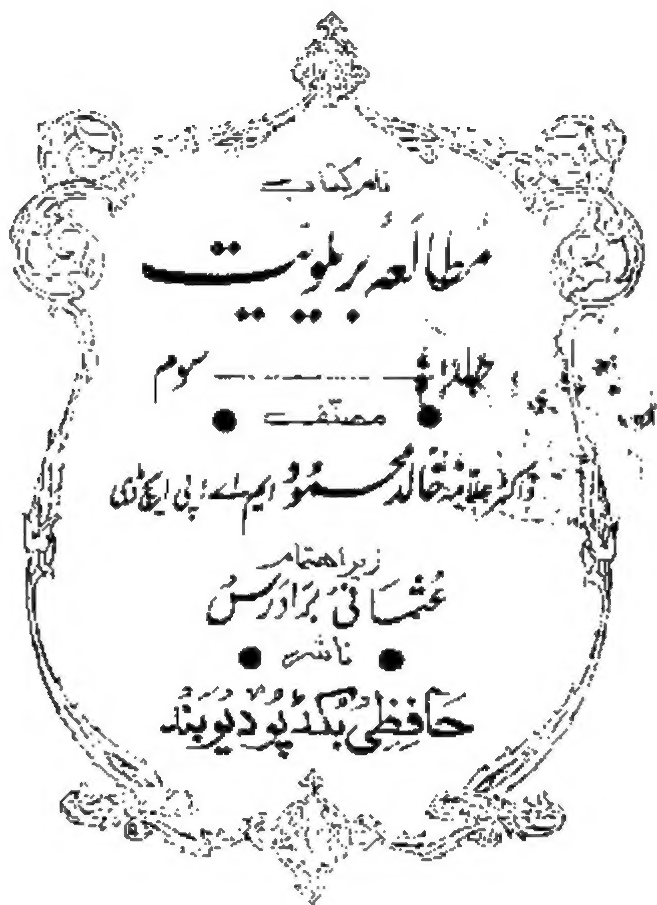 نام کتاب
مُطالَعۂ بریلویّت
جلد ـــــــــ سوم
مصنّف
ڈاکٹر علامہ خالد محمُود ایم اے، پی ایچ ڈی
زیر اہتمام
عُثمانی بَرادَرس
ناشر
حَافظی بُکڈپُو دیوبَند